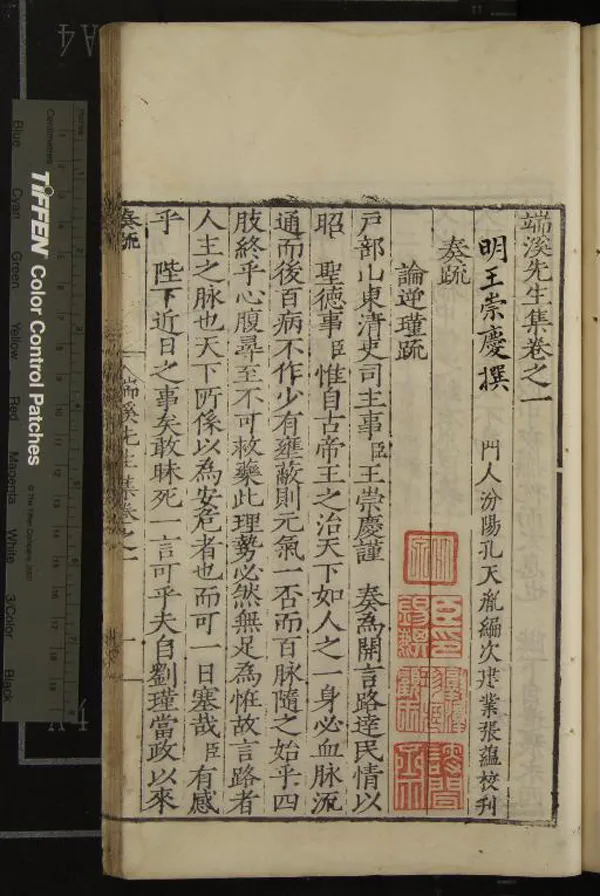 端溪先生集卷之一
明王崇慶撰 門人汾陽孔天胤編次建業張蘊校刋
奏疏
論逆瑾疏
戸部山東清吏司主事臣王崇慶謹 奏為開言路達民情以
昭 聖德事臣惟自古帝王之治天下如人之一身必血脉流
通而後百病不作少有壅蔽則元氣一否而百脉隨之始乎四
肢終乎心腹尋至不可救藥此理勢必然無足為恠故言路者
人主之脉也天下所係以為安危者也而可一日塞哉臣有感
乎 陛下近日之事矣敢昧死一言可乎夫自劉瑾當政以來
奏疏
端溪先生集卷之一
一
TIFFEN Color Control Patches
© The Tiffen Company, 2007
Centimetres
Blue
Cyan
Green
Yellow
Red
Magenta
White
3/Color
Black
A4